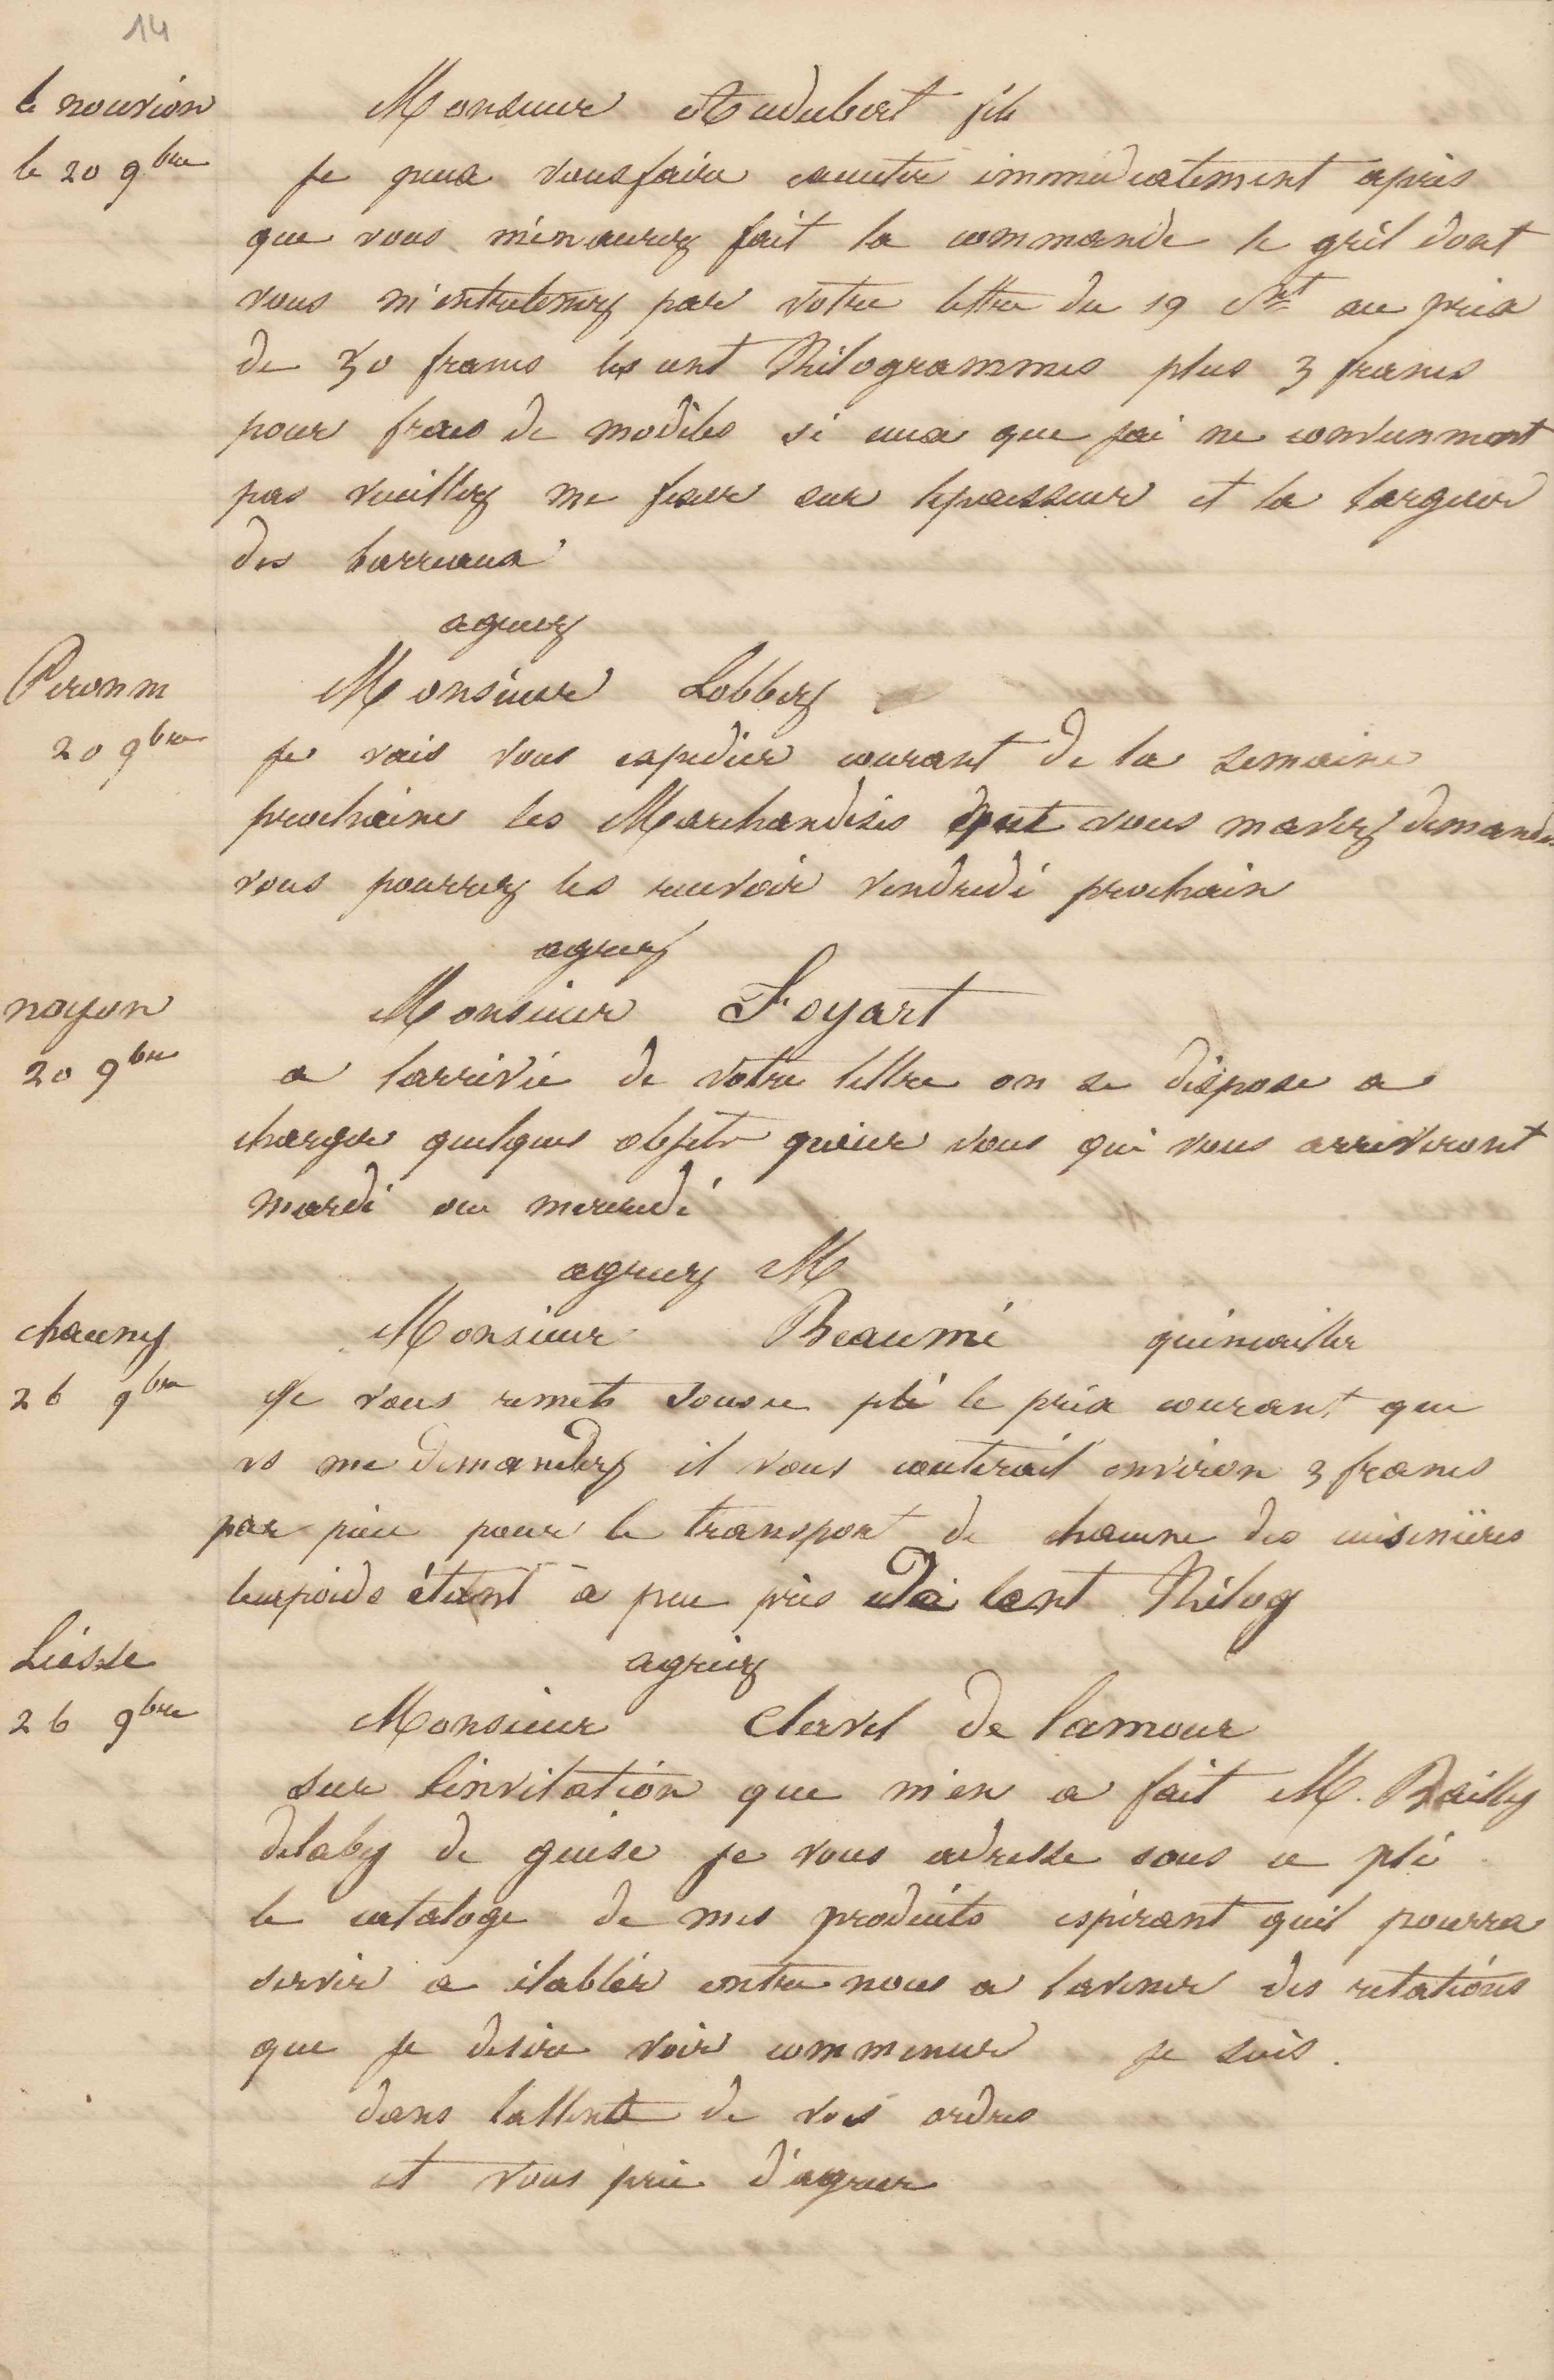 14
le nouvion
le 20 9bre
Monsieur Audubert fils
je peux vous faire executer immediatement après
que vous m'en aurez fait la commande le gril dont
vous m'entretenez par votre lettre du 19 Ct au prix
de 50 francs les cent Kilogrammes plus 3 francs
pour frais de modèles si ceux que jai ne conviennent
pas veuillez me fixer sur lepaisseur et la largeur
des barreaux
agreez
Peronne
20 9bre
Monsieur Lobbez
je vais vous expedier courant de la semaine
prochaine les Marchandises dont vous mavez demandé
vous pourrez les recevoir vendredi prochain
agreez
noyon
20 9bre
Monsieur Foyart
a larrivée de votre lettre on se dispose a
charger quelques objets pour vous qui vous arriveront
mardi ou mercredi
agreez M
chauny
26 9bre
Monsieur Beaumé quincailler
Je vous remets sous ce pli le prix courant que
vs me demandez il vous couterait environ 3 francs
par pièce pour le transport de chacune des cuisinières
leur poids étant à peu près de cent Kilog
agréez
Liesse
26 9bre
Monsieur Clervel de lamour
sur linvitation que m'en a fait M. Bailly
delaby de guise je vous adresse sous ce pli
le cataloge de mes produits espérant quil pourra
servir a établir entre nous a lavenir des relations
que je desire voir commencer je suis.
dans lattente de vos ordres
et vous prie d'agreer